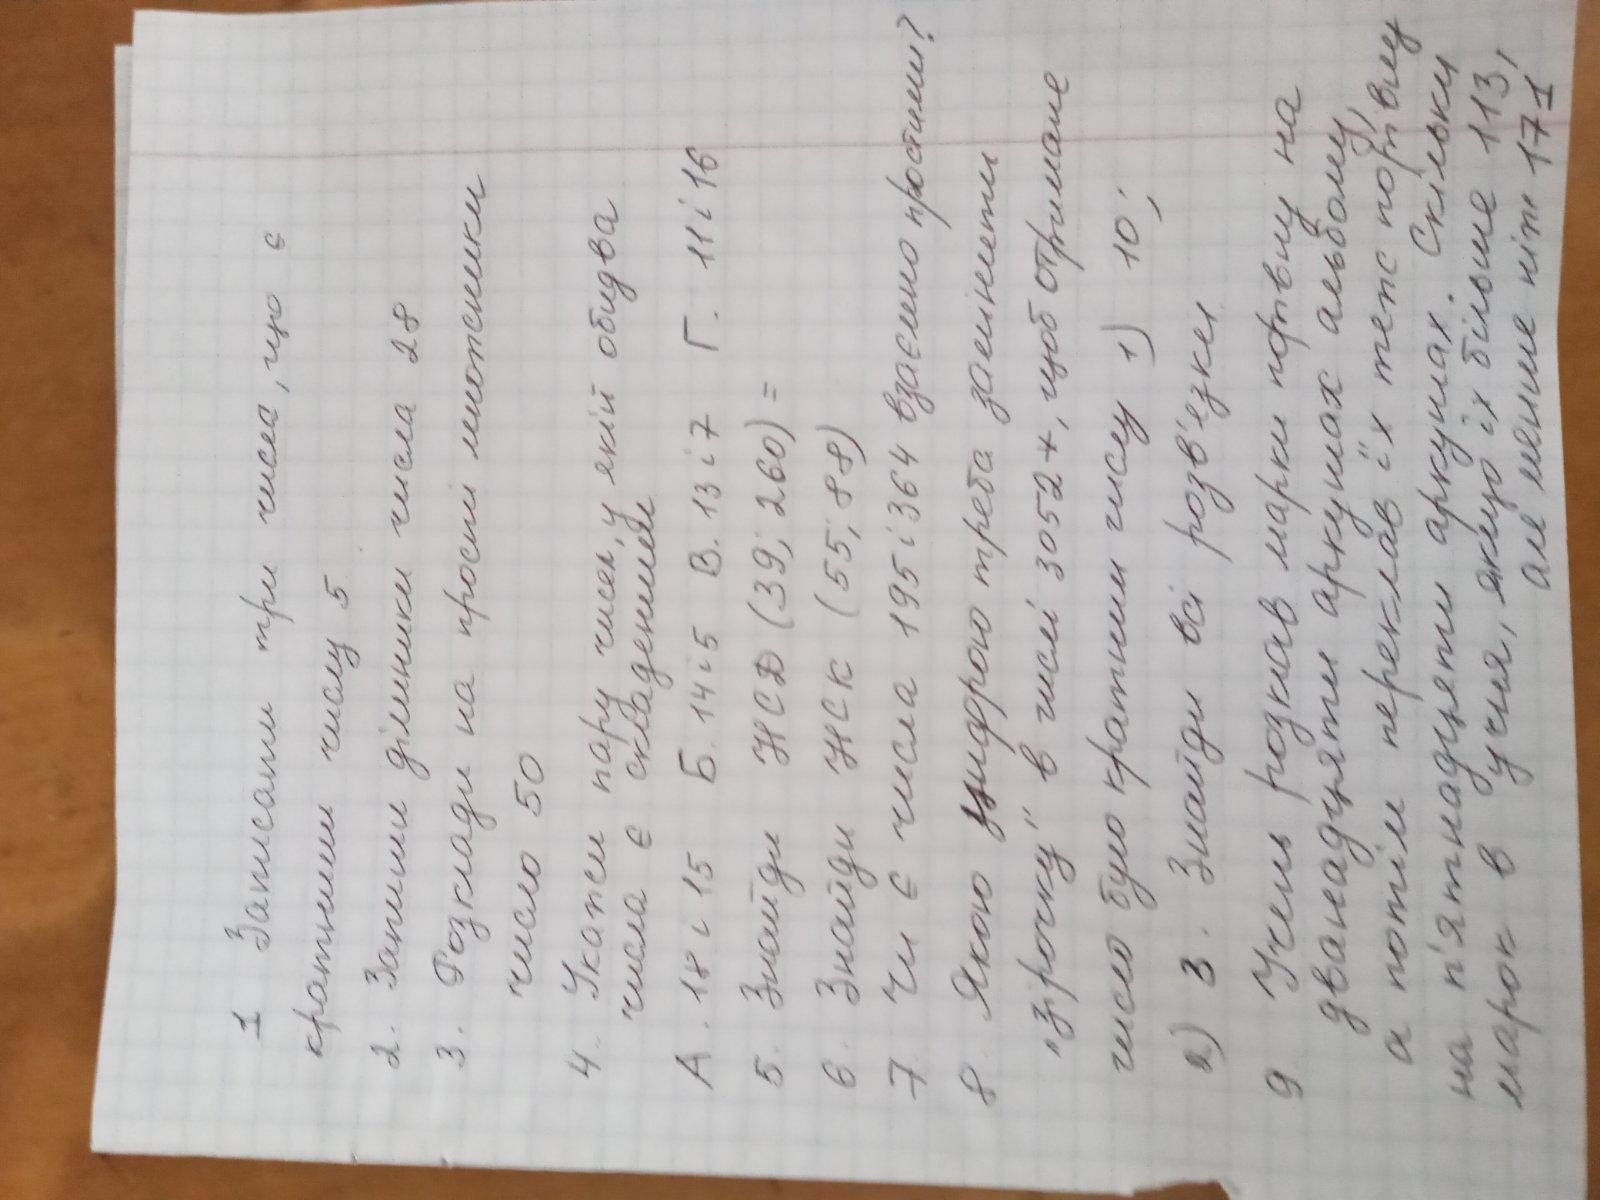 1 Записати три числа, що є
кратними числу 5
2. Запиши дільники числа 28
3. Розклади на прості множники
число 50
4. Укажи пару чисел, у якій обидва
числа є складеними
А. 18 і 15 Б. 14 і 5 В. 13 і 7 Г. 11 і 16
5. Знайди НСД (39; 260) =
6. Знайди НСК (55; 88)
7. Чи є числа 195 і 364 взаємно простими?
8. Якою цифрою треба замінити
"зірочку" в числі 3052*, щоб отримане
число було кратним числу 1) 10;
2) 3. Знайди всі розв'язки
9 Учень розклав марки порівну на
дванадцяти аркушах альбому,
а потім переклав їх теж порівну
на п'ятнадцяти аркушах. Скільки
марок в учня, якщо їх більше 113,
але менше ніж 171